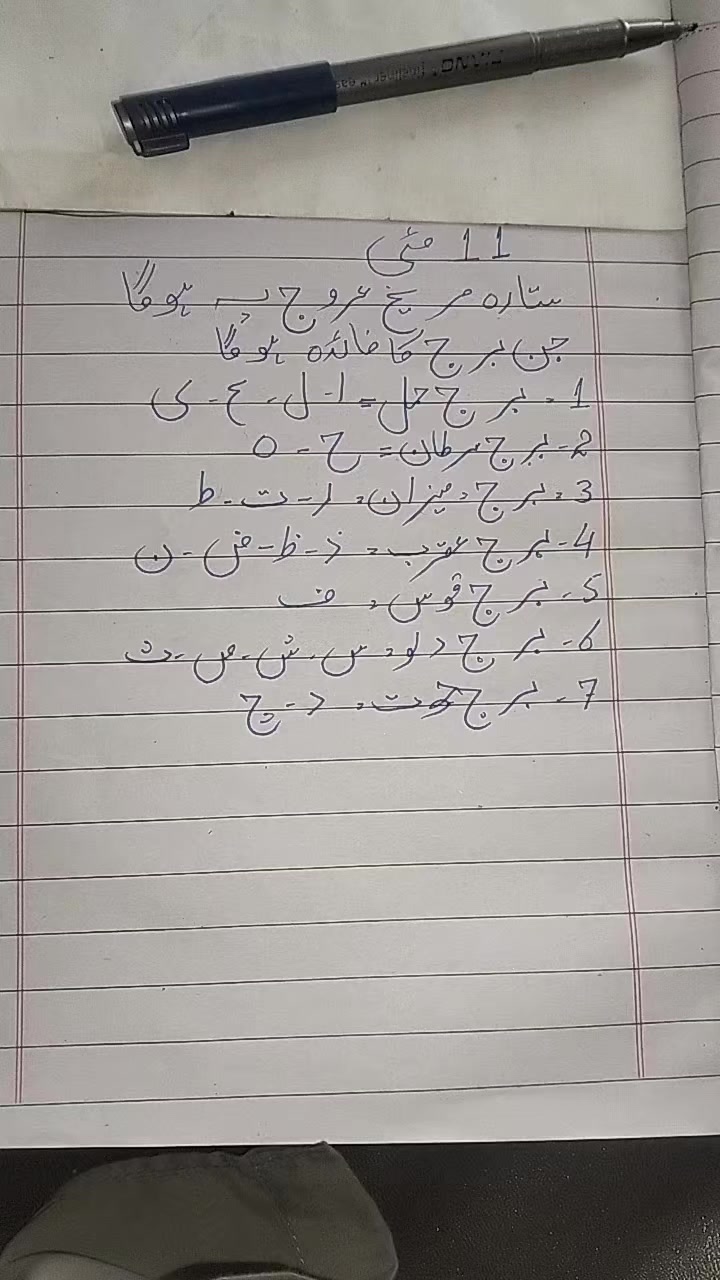 PIANO
11 مئی
ستارہ مریخ عروج پہ ہوگا
جن برج کا فائدہ ہوگا
1۔ برج حمل = ا۔ ل۔ ع۔ ی
2۔ برج سرطان = ح۔ ہ
3۔ برج میزان، ر۔ ت۔ ط
4۔ برج عقرب، ذ۔ ظ۔ ض۔ ن
5۔ برج قوس، ف
6۔ برج دلو، س۔ ش۔ ص۔ ث
7۔ برج حوت، د۔ چ